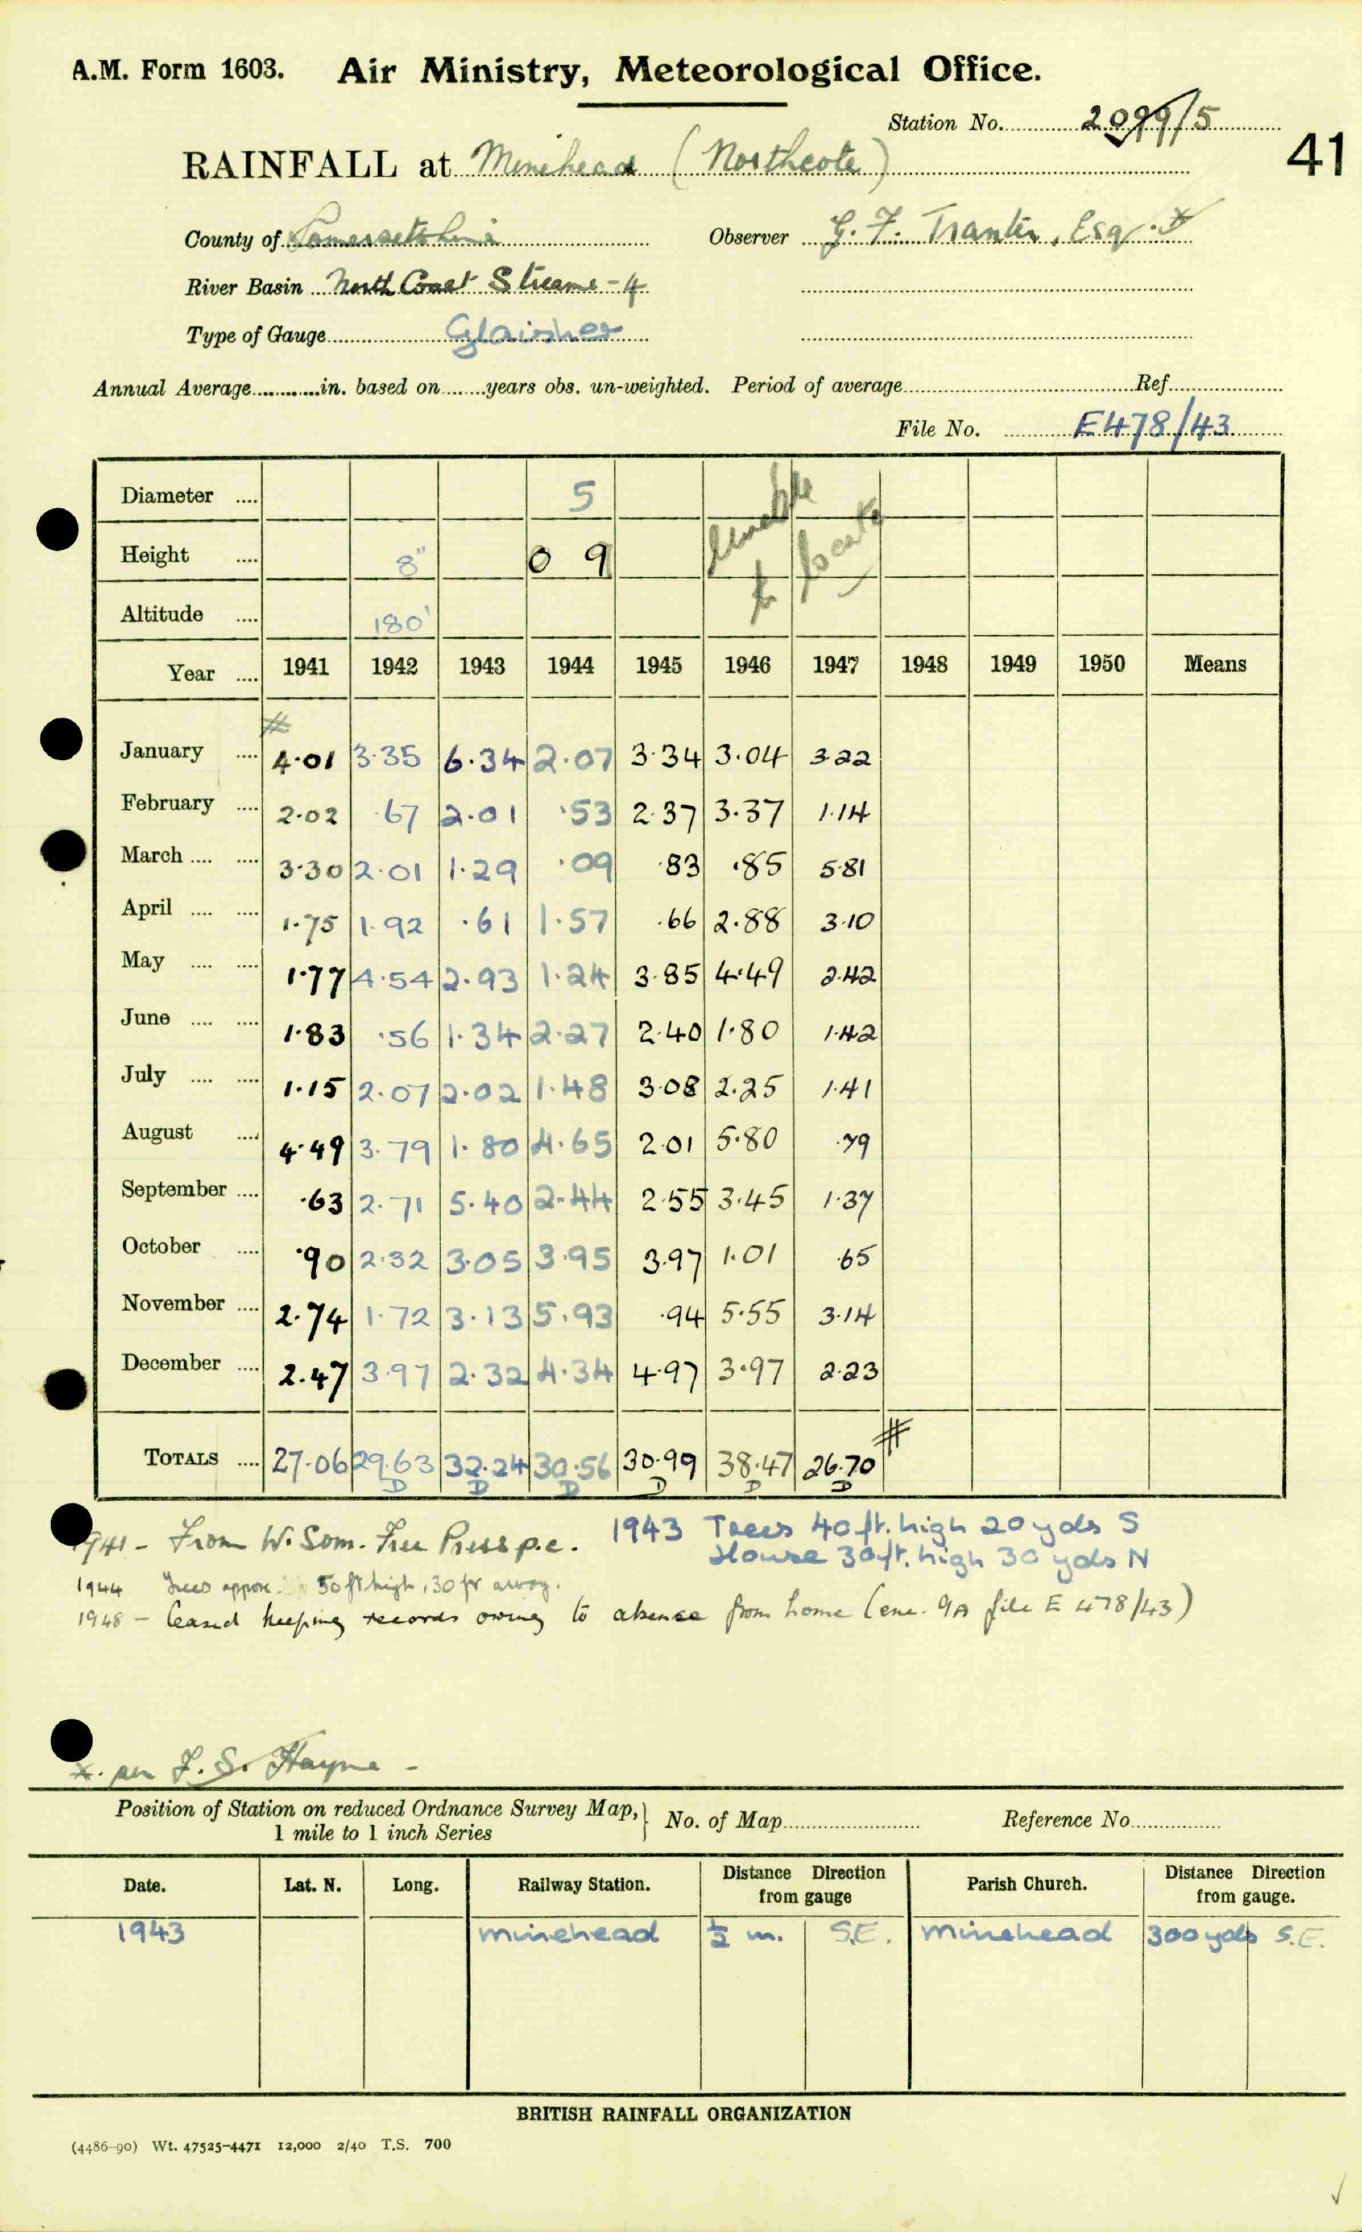 A.M. Form 1603. Air Ministry, Meteorological Office.
Station No. 2099/5
41
RAINFALL at Minehead (Northcote)
County of Somersetshire Observer G. F. Tranter, Esq. x
River Basin North Coast Streams - 4
Type of Gauge Glaisher
Annual Average in. based on years obs. un-weighted. Period of average Ref.
File No. E478/43
Diameter .... 5
Height .... 8" 0 9
Unable to locate
Altitude .... 180'
Year .... 1941 1942 1943 1944 1945 1946 1947 1948 1949 1950 Means
#
January .... 4.01 3.35 6.34 2.07 3.34 3.04 3.22
February .... 2.02 .67 2.01 .53 2.37 3.37 1.14
March .... .... 3.30 2.01 1.29 .09 .83 .85 5.81
April .... .... 1.75 1.92 .61 1.57 .66 2.88 3.10
May .... .... 1.77 4.54 2.93 1.24 3.85 4.49 2.42
June .... .... 1.83 .56 1.34 2.27 2.40 1.80 1.42
July .... .... 1.15 2.07 2.02 1.48 3.08 2.25 1.41
August .... 4.49 3.79 1.80 4.65 2.01 5.80 .79
September .... .63 2.71 5.40 2.44 2.55 3.45 1.37
October .... .90 2.32 3.05 3.95 3.97 1.01 .65
November .... 2.74 1.72 3.13 5.93 .94 5.55 3.14
December .... 2.47 3.97 2.32 4.34 4.97 3.97 2.23
TOTALS .... 27.06 29.63 32.24 30.56 30.99 38.47 26.70 #
D D D D D D
1941 - From W. Som. Free Press p.c. 1943 Trees 40 ft. high 20 yds S
House 30 ft. high 30 yds N
1944 Trees approx. 50 ft high, 30 ft away.
1948 - Ceased keeping records owing to absence from home (enc. 9A file E 478/43)
x. per F. S. Hayne -
Position of Station on reduced Ordnance Survey Map, 1 mile to 1 inch Series No. of Map Reference No.
Date. Lat. N. Long. Railway Station. Distance Direction from gauge Parish Church. Distance Direction from gauge.
1943 Minehead ½ m. S.E. Minehead 300 yds S.E.
BRITISH RAINFALL ORGANIZATION
(4486-90) Wt. 47525-4471 12,000 2/40 T.S. 700